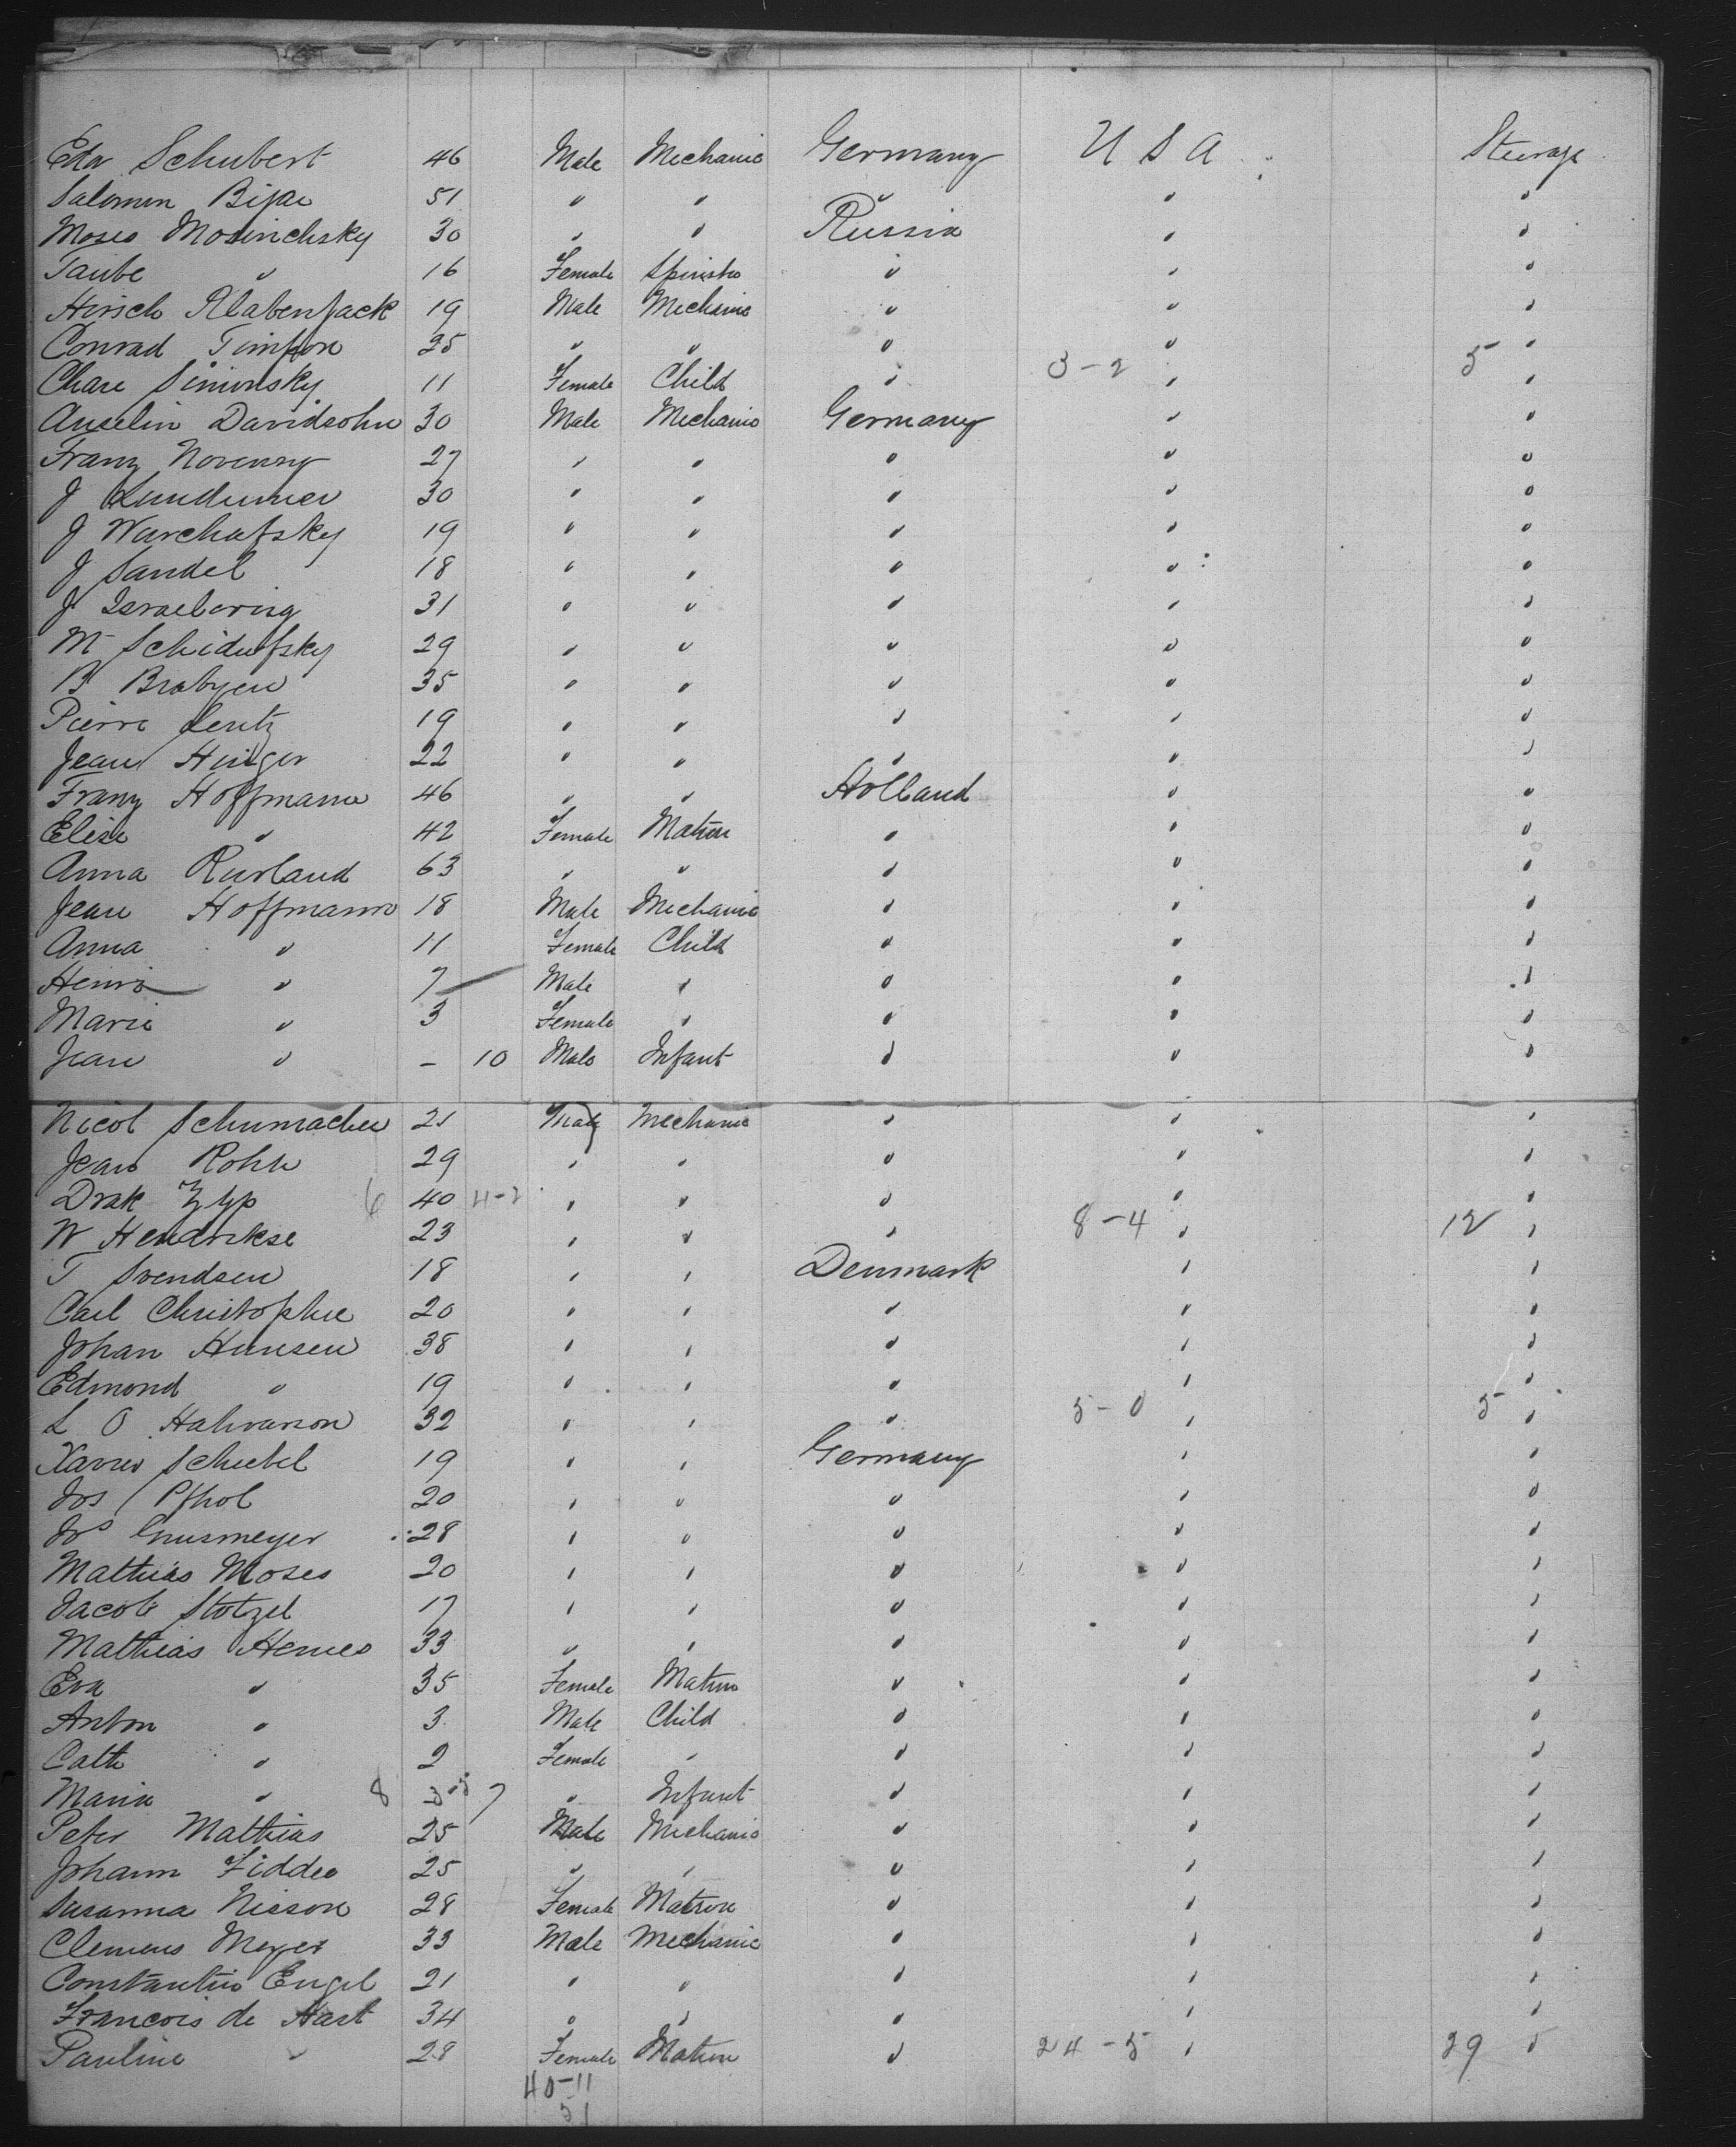 Edw Schubert 46 Male Mechanic Germany U S A Steerage
Salomon Bijar 51 " " " " "
Moses Mosinchsky 30 " " Russia " "
Taube " 16 Female Spinster " " "
Hirsch Klabenjack 19 Male Mechanic " " "
Conrad Timpon 25 " " " " "
3-2 5
Chare Simonsky 11 Female Child " " "
Anselm Davidsohn 30 Male Mechanic Germany " "
Franz Novenny 27 " " " " "
J 30 " " " " "
J Warchafsky 19 " " " " "
J Sandel 18 " " " " "
J 31 " " " " "
M Schidufsky 29 " " " " "
B Brabyen 35 " " " " "
Pierre Lentz 19 " " " " "
Jean 22 " " " " "
Franz Hoffmann 46 " " Holland " "
Elise " 42 Female Matron " " "
Anna Kurland 63 " " " " "
Jean Hoffmann 18 Male Mechanic " " "
Anna " 11 Female Child " " "
Henri " 7 Male " " " "
Marie " 3 Female " " " "
Jean " - 10 Male Infant " " "
Nicol Schumacher 21 Male Mechanic " " "
Jean Rohn 29 " " " " "
Drak Zyp 6 40 4-2 " " " " "
8-4 12
W Hendrikse 23 " " " " "
T Svendsen 18 " " Denmark " "
Carl Christophe 20 " " " " "
Johan Hansen 38 " " " " "
Edmond " 19 " " " " "
5-0 5
L O Halvarson 32 " " " " "
Xavier Schiebel 19 " " Germany " "
Jos Pfhol 20 " " " " "
Jos 28 " " " " "
Mathias Moses 20 " " " " "
Jacob Stotzel 17 " " " " "
Mathias Hemes 33 " " " " "
Eva " 35 Female Matron " " "
Anton " 3 Male Child " " "
Cath " 2 Female " " " "
Maria " 8 7 " Infant " " "
Peter Mathias 25 Male Mechanic " " "
Johann Fiddes 25 " " " " "
Susanna Nisson 28 Female Matron " " "
Clemens Meyer 33 Male Mechanic " " "
Constantin Engel 21 " " " " "
Francois de Hart 34 " " " " "
Pauline " 28 Female Matron " 24-5 " 29 "
40-11
51